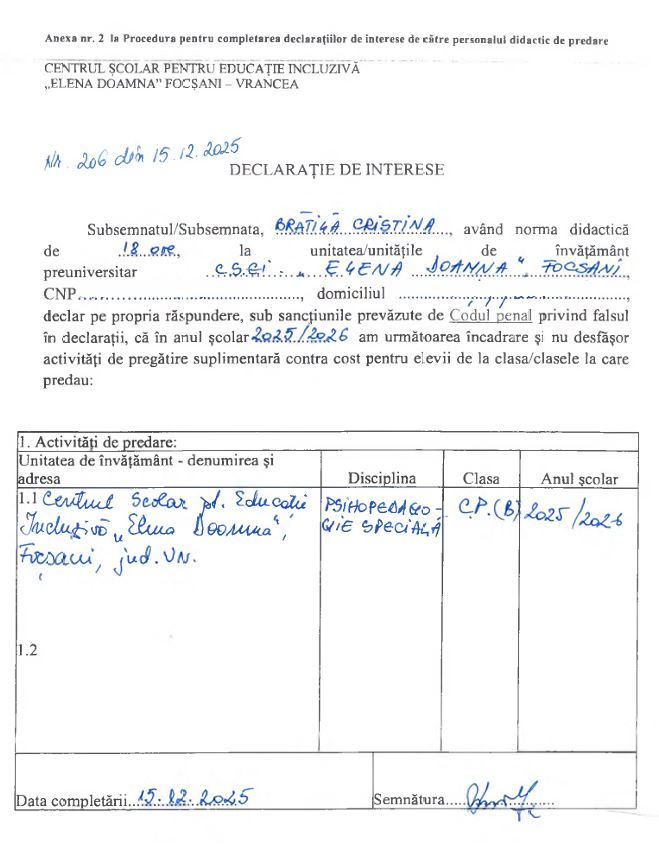 Anexa nr. 2 la Procedura pentru completarea declarațiilor de interese de către personalul didactic de predare
CENTRUL ȘCOLAR PENTRU EDUCAȚIE INCLUZIVĂ
„ELENA DOAMNA” FOCȘANI – VRANCEA
Nr. 206 din 15.12.2025
DECLARAȚIE DE INTERESE
Subsemnatul/Subsemnata, BRATILĂ CRISTINA, având norma didactică
de 18 ore, la unitatea/unitățile de învățământ
preuniversitar C.S.E.I. „ELENA DOAMNA", FOCSANI,
CNP......................................., domiciliul .......................................,
declar pe propria răspundere, sub sancțiunile prevăzute de Codul penal privind falsul
în declarații, că în anul școlar 2025/2026 am următoarea încadrare și nu desfășor
activități de pregătire suplimentară contra cost pentru elevii de la clasa/clasele la care
predau:
1. Activități de predare:
Unitatea de învățământ - denumirea și
adresa Disciplina Clasa Anul școlar
1.1 Centrul Scolar pt. Educatie PSIHOPEDAGO- C.P.(B) 2025/2026
Incluzivă „Elena Doamna", GIE SPECIALĂ
Focsani, jud. VN.
1.2
Data completării...15.12.2025 Semnătura.....